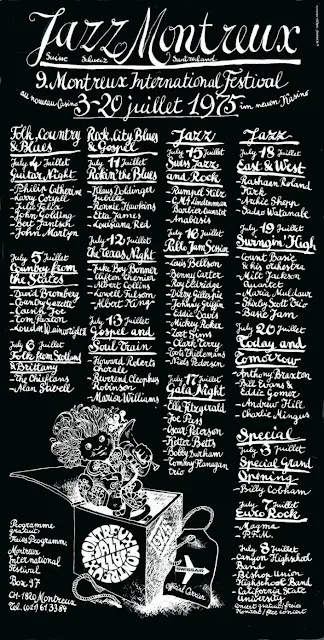 Jazz Montreux
Suisse Schweiz Switzerland
9. Montreux International Festival
au nouveau Casino 3-20 juillet 1975 im neuen Kasino
Folk, Country
& Blues
July 4 Juillet
Guitar Night
- Philip Catherine
- Larry Coryell
- Julie Felix
- John Golding
- Bert Jantsch
- John Martyn
July 5 Juillet
Country from
the States
- David Bromberg
- Country Gazette
- Country Joe
- Tom Paxton
- Loudon Wainwright
July 6 Juillet
Folk from Scotland
& Brittany
- The Chieftans
- Alan Stivell
Rock, City Blues
& Gospel
July 11 Juillet
Rockin' the Blues
- Klaus Doldinger
Jubilee
- Ronnie Hawkins
- Etta James
- Louisiana Red
July 12 Juillet
The Texas Night
- Juke Boy Bonner
- Clifton Chenier
- Albert Collins
- Lowell Fulson
- Albert King
July 13 Juillet
Gospel and
Soul Train
- Howard Roberts
Chorale
- Reverend Cleophus
Robinson
- Marion Williams
Jazz
July 15 Juillet
Swiss Jazz
and Rock
- Rumpel Stilz
Quartet
Anabasis
July 16 Juillet
Pablo Jam Session
- Louis Bellson
- Benny Carter
- Roy Eldridge
- Dizzy Gillespie
- Johnny Griffin
- Eddie Davis
- Mickey Roker
- Zoot Sims
- Clark Terry
- Toots Thielemans
- Niels Pedersen
July 17 Juillet
Gala Night
- Ella Fitzgerald
- Joe Pass
- Oscar Peterson
- Keter Betts
- Bobby Durham
- Tommy Flanagan
Trio
Jazz
July 18 Juillet
East & West
- Rashaan Roland
Kirk
- Archie Shepp
- Sadao Watanabe
July 19 Juillet
Swingin' High
- Count Basie
& his orkestra
- Milt Jackson
Quartet
- Maria Muldaur
- Shirley Scott Trio
- Basie Jam
July 20 Juillet
Today and
tomorrow
- Anthony Braxton
- Bill Evans &
Eddie Gomez
- Andrew Hill
- Charlie Mingus
Special
July 3 Juillet
Special Grand
Opening
- Billy Cobham
July 7 Juillet
Euro Rock
- Magma
- P.F.M.
July 8 Juillet
- Canyon Highshool
Band
- Bishop Union
Highshool Band
- California State
University
Concert gratuit/freies
Konzert/free concert
Programme
gratuit
Freies Programm:
Montreux
International
Festival
Box 97
CH-1820 Montreux
Tel. (021) 61 33 84
SWISSAIR
Official Carrier